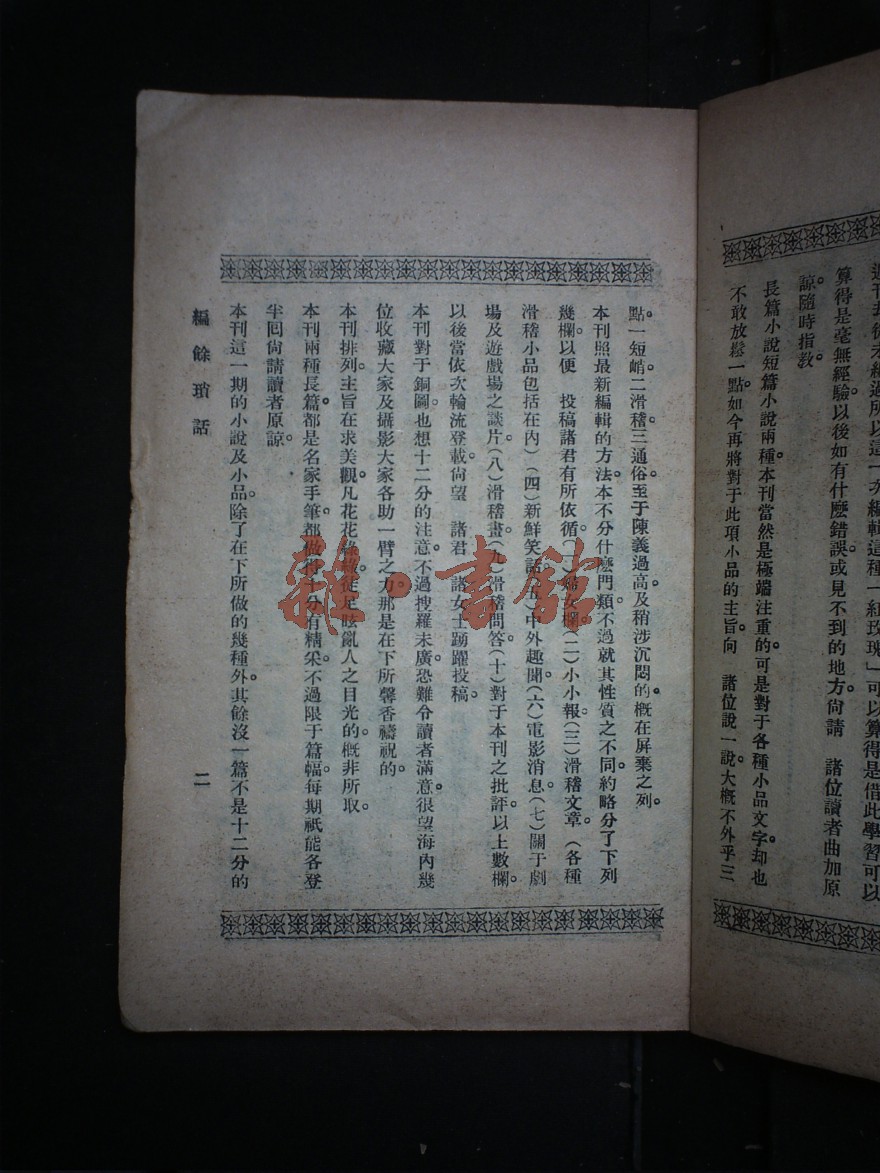 週刊却從未編過所以這一次編輯這種「紅玫瑰」可以算得是借此學習可以
算得是毫無經驗以後如有什麽錯誤。或見不到的地方。尙請　諸位讀者曲加原
諒隨時指教
長篇小說短篇小說兩種。本刊當然是極端注重的。可是對于各種小品文字。却也
不敢放鬆一點。如今再將對于此項小品的主旨。向　諸位說一說。大概不外乎三
點。一短峭二滑稽三通俗至于陳義過高及稍涉沉悶的。概在屏棄之列。
本刊照最新編輯的方法。本不分什麽門類。不過就其性質之不同。約略分了下列
幾欄。以便　投稿諸君有所依循。(一)婦女欄(二)小小報(三)滑稽文章。(各種
滑稽小品包括在內)(四)新鮮笑話(五)中外趣聞(六)電影消息。(七)關于劇
場及遊戲場之談片(八)滑稽畫(九)滑稽問答(十)對于本刊之批評。以上數欄。
以後當依次輪流登載。尙望　諸君　諸女士踴躍投稿。
本刊對于銅圖。也想十二分的注意。不過搜羅未廣。恐難令讀者滿意。很望海內幾
位收藏大家及攝影大家各助一臂之力。那是在下所馨香禱祝的。
本刊排列。主旨在求美觀。凡花花綠綠。徒足眩亂人之目光的。概非所取。
本刊兩種長篇。都是名家手筆。都做得十分有精采。不過限于篇幅。每期祇能各登
半囘。尙請讀者原諒。
本刊這一期的小說及小品。除了在下所做的幾種外。其餘沒一篇不是十二分的
編餘瑣話
二
雜·書館